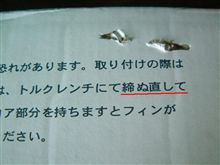 恐れがあります。取り付けの際は
は、トルクレンチにて締ぬ直して
リア部分を持ちますとフィンが
ださい。